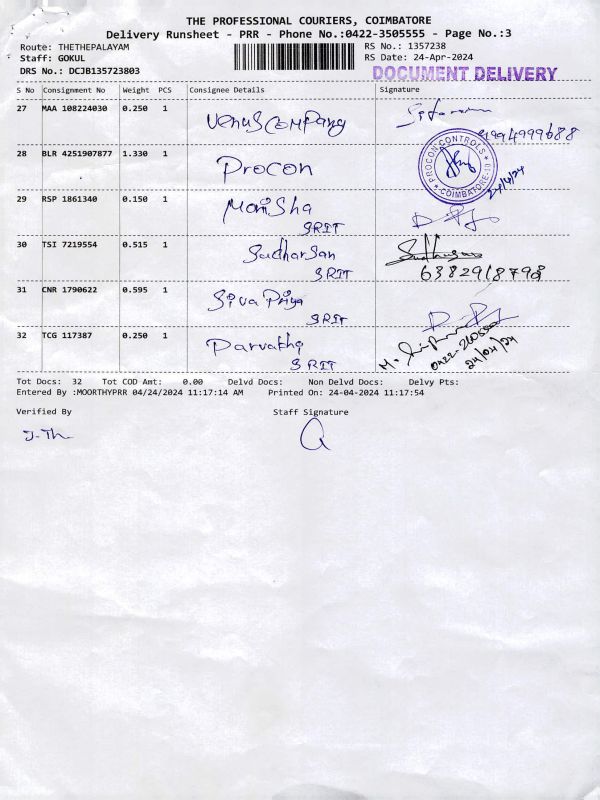 THE PROFESSIONAL COURIERS, COIMBATORE
Delivery Runsheet - PRR - Phone No.:0422-3505555 - Page No.:3
Route: THETHEPALAYAM RS No.: 1357238
Staff: GOKUL RS Date: 24-Apr-2024
DRS No.: DCJB135723803 DOCUMENT DELIVERY
S No Consignment No Weight PCS Consignee Details Signature
27 MAA 108224030 0.250 1 Venus Company
9994999688
28 BLR 4251907877 1.330 1 Procon
PROCON CONTROLS COIMBATORE
24/4/24
29 RSP 1861340 0.150 1 Monisha
SRIT
30 TSI 7219554 0.515 1 Sudharsan
SRIT 6382918798
31 CNR 1790622 0.595 1 Siva Priya
SRIT
32 TCG 117387 0.250 1 Parvathy
SRIT
24/04/24
Tot Docs: 32 Tot COD Amt: 0.00 Delvd Docs: Non Delvd Docs: Delvy Pts:
Entered By :MOORTHYPRR 04/24/2024 11:17:14 AM Printed On: 24-04-2024 11:17:54
Verified By Staff Signature